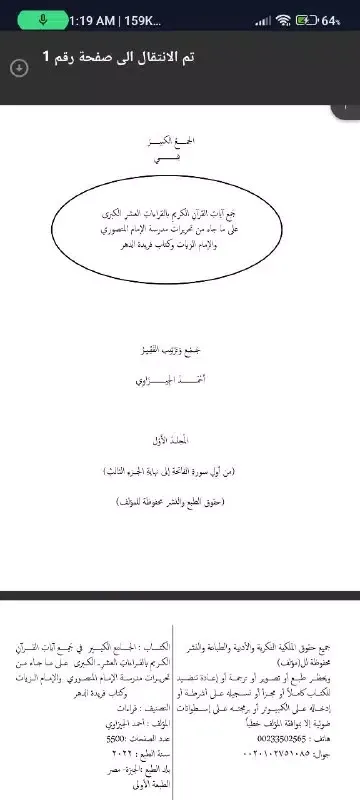 1:19 AM | 159K...
64%
تم الانتقال الى صفحة رقم 1
الجمع الكبير
في
جمع آيات القرآن الكريم بالقراءات العشر الكبرى
على ما جاء من تحريرات مدرسة الإمام المنصوري
والإمام الزيات وكتاب فريدة الدهر
جمع وترتيب الفقير
أحمد الجيزاوي
المجلد الأول
(من أول سورة الفاتحة إلى نهاية الجزء الثالث)
(حقوق الطبع والنشر محفوظة للمؤلف)
جميع حقوق الملكية الفكرية والأدبية والطباعة والنشر
محفوظة لل(مؤلف)
ويحظر طبع أو تصوير أو ترجمة أو إعادة تنضيد
للكتاب كاملاً أو مجزأ أو تسجيله على أشرطة أو
إدخاله على الكمبيوتر أو برمجته على إسطوانات
ضوئية إلا بموافقة المؤلف خطياً
هاتف : 00233502565
جوال: ٠٠٢٠١٠٢٧٥١٠٨٥
الكتاب : الجامع الكبير في جمع آيات القرآن
الكريم بالقراءات العشر الكبرى على ما جاء من
تحريرات مدرسة الإمام المنصوري والإمام الزيات
وكتاب فريدة الدهر
التصنيف : قراءات
المؤلف : أحمد الجيزاوي
عدد الصفحات :5500
سنة الطبع : ٢٠٢٢
بلد الطبع :الجيزة- مصر
الطبعة الأولى